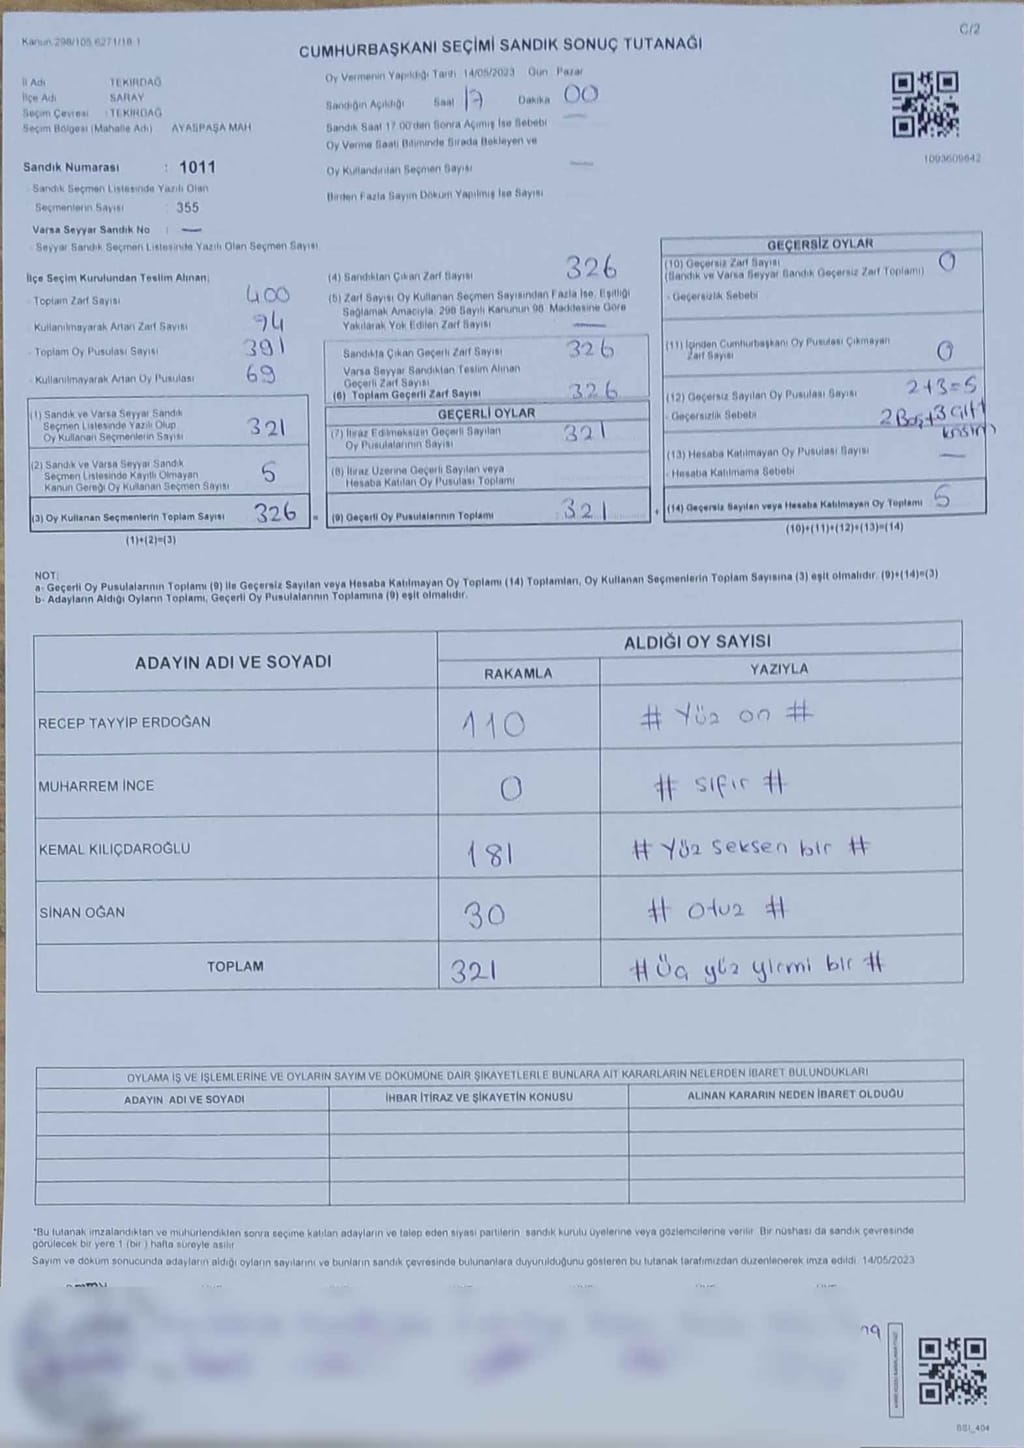 Kanun 298/105 6271/18-1
C/2
CUMHURBAŞKANI SEÇİMİ SANDIK SONUÇ TUTANAĞI
İl Adı : TEKİRDAĞ
İlçe Adı : SARAY
Seçim Çevresi : TEKİRDAĞ
Seçim Bölgesi (Mahalle Adı) AYASPAŞA MAH
Oy Vermenin Yapıldığı Tarih 14/05/2023 Gün Pazar
Sandığın Açıldığı Saat 17 Dakika 00
Sandık Saat 17:00'den Sonra Açılmış İse Sebebi
Oy Verme Saati Bitiminde Sırada Bekleyen ve
Oy Kullandırılan Seçmen Sayısı —
Birden Fazla Sayım Döküm Yapılmış İse Sayısı
1093609642
Sandık Numarası : 1011
Sandık Seçmen Listesinde Yazılı Olan
Seçmenlerin Sayısı : 355
Varsa Seyyar Sandık No : —
Seyyar Sandık Seçmen Listesinde Yazılı Olan Seçmen Sayısı
İlçe Seçim Kurulundan Teslim Alınan;
- Toplam Zarf Sayısı 400
- Kullanılmayarak Artan Zarf Sayısı 94
- Toplam Oy Pusulası Sayısı 391
- Kullanılmayarak Artan Oy Pusulası 69
(1) Sandık ve Varsa Seyyar Sandık
Seçmen Listesinde Yazılı Olup
Oy Kullanan Seçmenlerin Sayısı 321
(2) Sandık ve Varsa Seyyar Sandık
Seçmen Listesinde Kayıtlı Olmayan
Kanun Gereği Oy Kullanan Seçmen Sayısı 5
(3) Oy Kullanan Seçmenlerin Toplam Sayısı 326 =
(1)+(2)=(3)
(4) Sandıktan Çıkan Zarf Sayısı 326
(5) Zarf Sayısı Oy Kullanan Seçmen Sayısından Fazla İse, Eşitliği
Sağlamak Amacıyla, 298 Sayılı Kanunun 98. Maddesine Göre
Yakılarak Yok Edilen Zarf Sayısı —
Sandıkta Çıkan Geçerli Zarf Sayısı 326
Varsa Seyyar Sandıktan Teslim Alınan
Geçerli Zarf Sayısı
(6) Toplam Geçerli Zarf Sayısı 326
GEÇERLİ OYLAR
(7) İtiraz Edilmeksizin Geçerli Sayılan
Oy Pusulalarının Sayısı 321
(8) İtiraz Üzerine Geçerli Sayılan veya
Hesaba Katılan Oy Pusulası Toplamı
(9) Geçerli Oy Pusulalarının Toplamı 321 +
GEÇERSİZ OYLAR
(10) Geçersiz Zarf Sayısı 0
(Sandık ve Varsa Seyyar Sandık Geçersiz Zarf Toplamı)
- Geçersizlik Sebebi
(11) İçinden Cumhurbaşkanı Oy Pusulası Çıkmayan
Zarf Sayısı 0
(12) Geçersiz Sayılan Oy Pusulası Sayısı 2+3=5
- Geçersizlik Sebebi 2 Boş+3 Çift
(13) Hesaba Katılmayan Oy Pusulası Sayısı —
- Hesaba Katılmama Sebebi
(14) Geçersiz Sayılan veya Hesaba Katılmayan Oy Toplamı 5
(10)+(11)+(12)+(13)=(14)
NOT:
a- Geçerli Oy Pusulalarının Toplamı (9) ile Geçersiz Sayılan veya Hesaba Katılmayan Oy Toplamı (14) Toplamları, Oy Kullanan Seçmenlerin Toplam Sayısına (3) eşit olmalıdır. (9)+(14)=(3)
b- Adayların Aldığı Oyların Toplamı, Geçerli Oy Pusulalarının Toplamına (9) eşit olmalıdır.
ADAYIN ADI VE SOYADI
ALDIĞI OY SAYISI
RAKAMLA YAZIYLA
RECEP TAYYİP ERDOĞAN 110 # Yüz on #
MUHARREM İNCE 0 # sıfır #
KEMAL KILIÇDAROĞLU 181 # Yüz seksen bir #
SİNAN OĞAN 30 # otuz #
TOPLAM 321 # Üç yüz yirmi bir #
OYLAMA İŞ VE İŞLEMLERİNE VE OYLARIN SAYIM VE DÖKÜMÜNE DAİR ŞİKAYETLERLE BUNLARA AİT KARARLARIN NELERDEN İBARET BULUNDUKLARI
ADAYIN ADI VE SOYADI İHBAR İTİRAZ VE ŞİKAYETİN KONUSU ALINAN KARARIN NEDEN İBARET OLDUĞU
*Bu tutanak imzalandıktan ve mühürlendikten sonra seçime katılan adayların ve talep eden siyasi partilerin sandık kurulu üyelerine veya gözlemcilerine verilir. Bir nüshası da sandık çevresinde
görülecek bir yere 1 (bir) hafta süreyle asılır
Sayım ve döküm sonucunda adayların aldığı oyların sayılarını ve bunların sandık çevresinde bulunanlara duyurulduğunu gösteren bu tutanak tarafımızdan düzenlenerek imza edildi. 14/05/2023
BSI_404